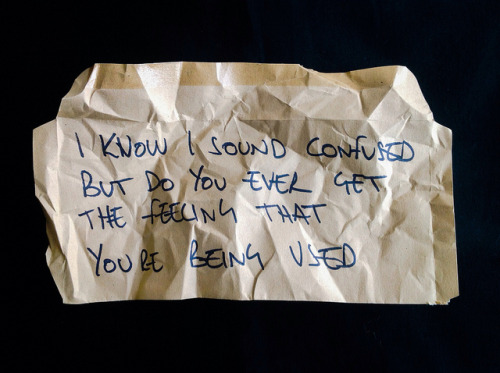 I KNOW I SOUND CONFUSED
BUT DO YOU EVER GET
THE FEELING THAT
YOU RE BEING USED